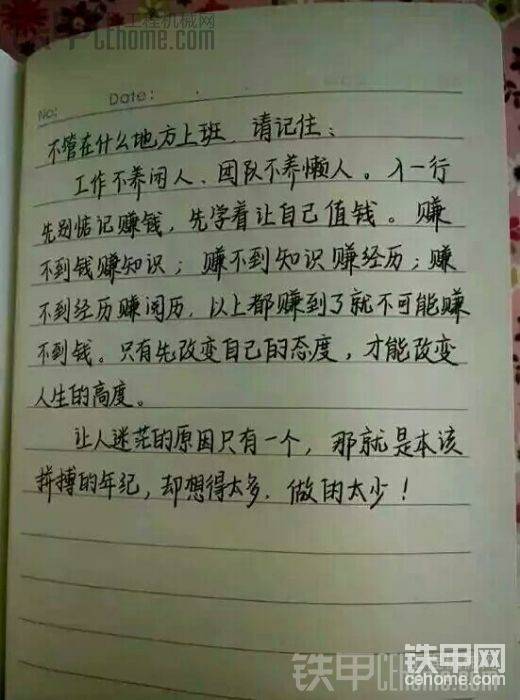 工程机械网
CEhome.com
No:
Date:
不管在什么地方上班,请记住:
工作不养闲人、团队不养懒人。入一行
先别惦记赚钱,先学着让自己值钱。赚
不到钱赚知识;赚不到知识赚经历;赚
不到经历赚阅历,以上都赚到了就不可能赚
不到钱。只有先改变自己的态度,才能改变
人生的高度。
让人迷茫的原因只有一个,那就是本该
拼搏的年纪,却想得太多.做的太少!
铁甲网
CEhome.com
铁甲
CEhome.com